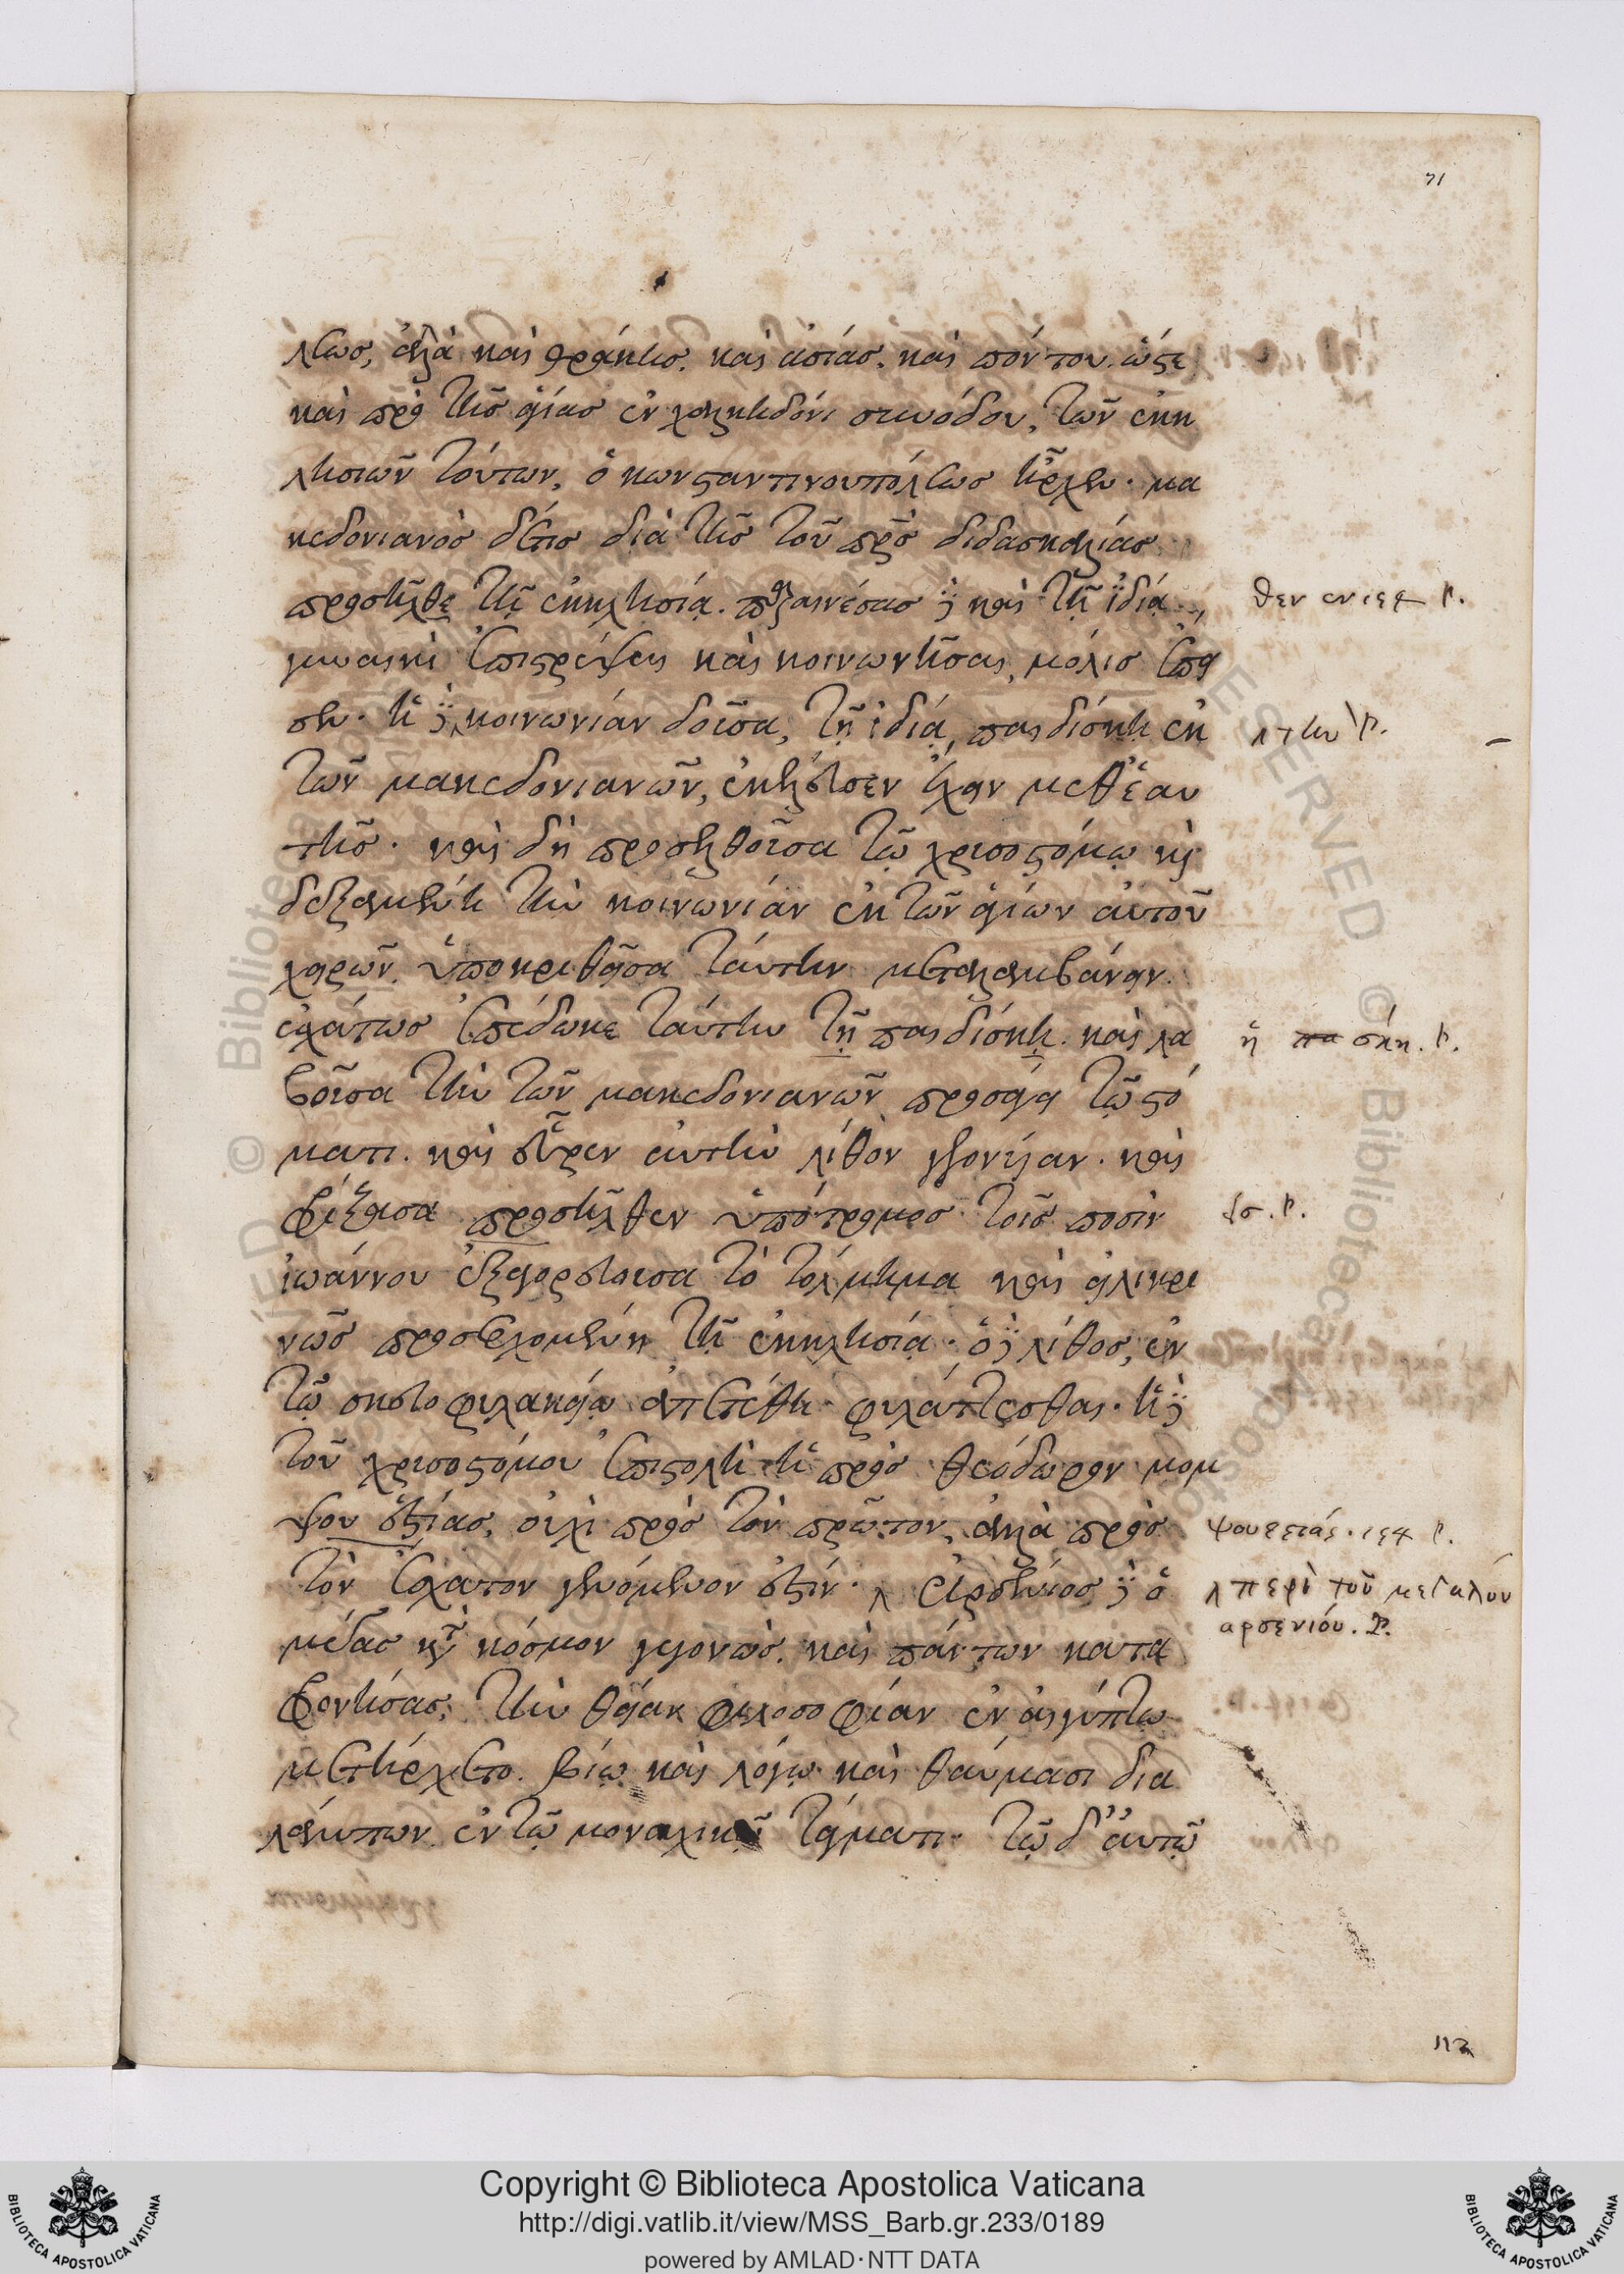 71
λεως, ἀλλὰ καὶ θράκης. καὶ ἀσίας. καὶ πόντου. ὥστε
καὶ πρὸ τῆς ἁγίας ἐν χαλκηδόνι συνόδου, τῶν ἐκκ
λησιῶν τούτων, ὁ κωνσταντινουπόλεως ἦρχεν. μα
κεδονιανὸς δέ τις διὰ τῆς τοῦ πρς διδασκαλίας
προσῆλθε τῇ ἐκκλησίᾳ. παραινέσας δὲ καὶ τῇ ἰδίᾳ
θεν εν ιεϥ Ρ.
γυναικὶ ἐπιστρέψαι καὶ κοινωνῆσαι, μόλις ἔπει
σεν. ἡ δὲ κοινωνίαν δοῦσα, τῇ ἰδίᾳ, παιδίσκῃ ἐκ
λ την Ρ.
τῶν μακεδονιανῶν, ἐκέλευσεν ἔχειν μεθ' ἑαυ
τῆς. καὶ δὴ προσελθοῦσα τῷ χρισοστόμῳ καὶ
δεξαμένη τὴν κοινωνίαν ἐκ τῶν ἁγίων αὐτοῦ
χειρῶν. ὑποκριθεῖσα ταύτην μεταλαμβάνειν.
ἐσχάτως ἐπέδωκε ταύτην τῇ παιδίσκῃ. καὶ λα
ἡ πα σκη. Ρ.
βοῦσα τὴν τῶν μακεδονιανῶν προσάγει τῷ στό
ματι. καὶ εὗρεν αὐτὴν λίθον γεγονυῖαν. καὶ
φρίξασα προσῆλθεν ὑπότρομος τοῖς ποσὶν
ἰωάννου ἐξαγορεύουσα τὸ τόλμημα καὶ εἰλικρι
νῶς προσερχομένη τῇ ἐκκλησίᾳ. ὁ δὲ λίθος, ἐν
τῷ σκευοφυλακείῳ ἀπετέθη φυλάττεσθαι. ἡ δὲ
τοῦ χρισοστόμου ἐπιστολὴ ἡ πρὸς θεόδωρον μομ
ψου ἑστίας, οὐχὶ πρὸς τὸν πρῶτον, ἀλλὰ πρὸς
ψουεστίας. ιεϥ Ρ.
τὸν ἔσχατον γενόμενον ἐστίν. λ ἀρσένιος δὲ ὁ
λ περὶ τοῦ μεγάλου
αρσενίου. Ρ.
μέγας κατὰ κόσμον γεγονὼς. καὶ πάντων κατα
φρονήσας, τὴν θείαν φιλοσοφίαν ἐν αἰγύπτῳ
μετήρχετο. βίῳ καὶ λόγῳ καὶ θαύμασι δια
λάμπων ἐν τῷ μοναχικῷ τάγματι. τῷ δ' αὐτῷ
112
Copyright © Biblioteca Apostolica Vaticana
http://digi.vatlib.it/view/MSS_Barb.gr.233/0189
powered by AMLAD·NTT DATA
BIBLIOTECA APOSTOLICA VATICANA
BIBLIOTECA APOSTOLICA VATICANA